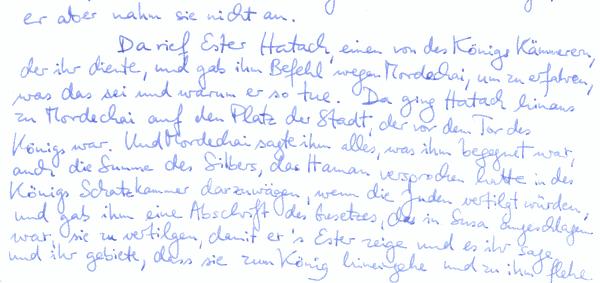 er aber nahm sie nicht an.
Da rief Ester Hatach, einen von des Königs Kämmerern,
der ihr diente, und gab ihm Befehl wegen Mordechai, um zu erfahren,
was das sei und warum er so tue. Da ging Hatach hinaus
zu Mordechai auf den Platz der Stadt, der vor dem Tor des
Königs war. Und Mordechai sagte ihm alles, was ihm begegnet war,
auch die Summe des Silbers, das Haman versprochen hatte in des
Königs Schatzkammer darzuwägen, wenn die Juden vertilgt würden,
und gab ihm eine Abschrift des Gesetzes, das in Susa angeschlagen
war, sie zu vertilgen, damit er's Ester zeige und es ihr sage
und ihr gebiete, dass sie zum König hineingehe und zu ihm flehe